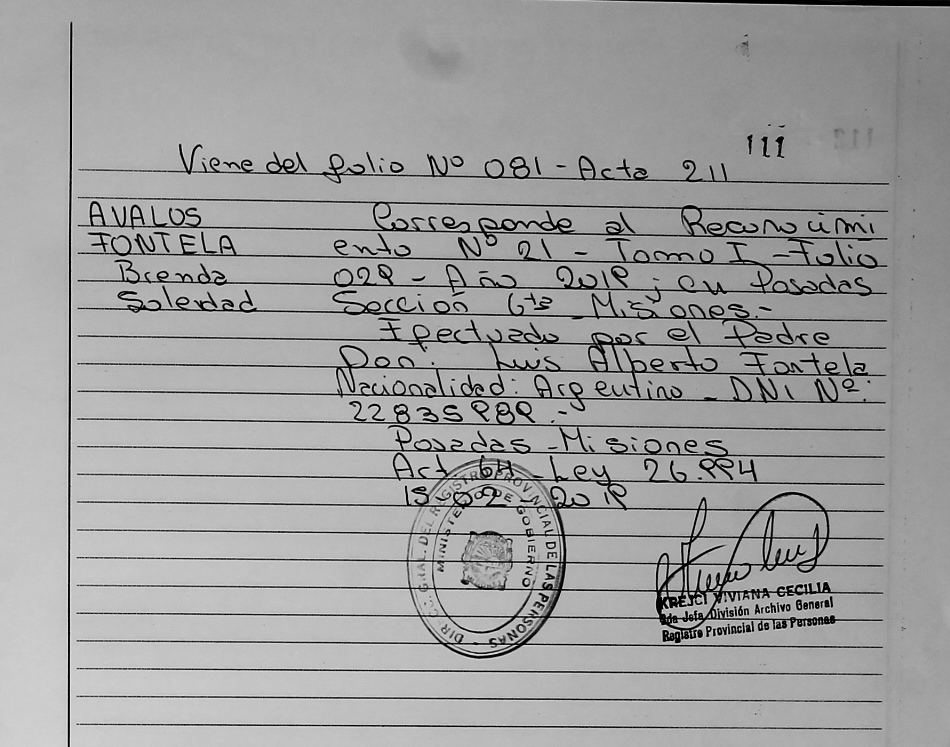 111
Viene del folio Nº 081 - Acta 211
AVALOS Corresponde al Reconocimi
FONTELA ento Nº 21 - Tomo I - Folio
Brenda 029 - Año 2019; en Posadas
Soledad Sección 6ta Misiones.-
Efectuado por el Padre
Don: Luis Alberto Fontela
Nacionalidad: Argentino - DNI Nº:
22835989.-
Posadas - Misiones
Art 64 - Ley 26.994
15-02-2019
DIR. GRAL. DEL REGISTRO PROVINCIAL DE LAS PERSONAS -
MINISTERIO DE GOBIERNO
KREJCI VIVIANA CECILIA
2da Jefa División Archivo General
Registro Provincial de las Personas